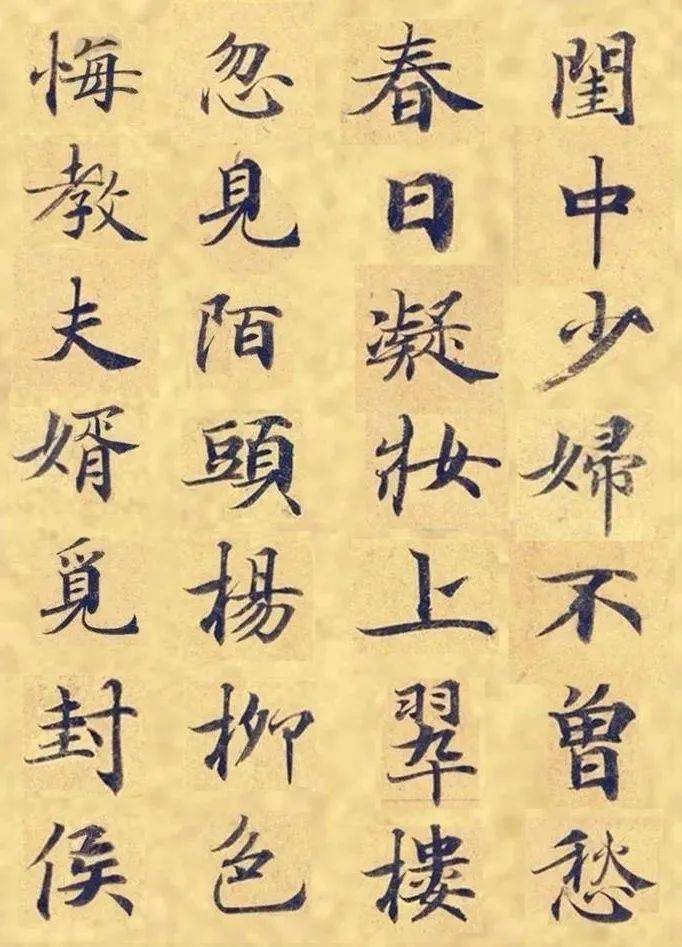 閨中少婦不曾愁
春日凝妝上翠樓
忽見陌頭楊柳色
悔教夫婿覓封侯